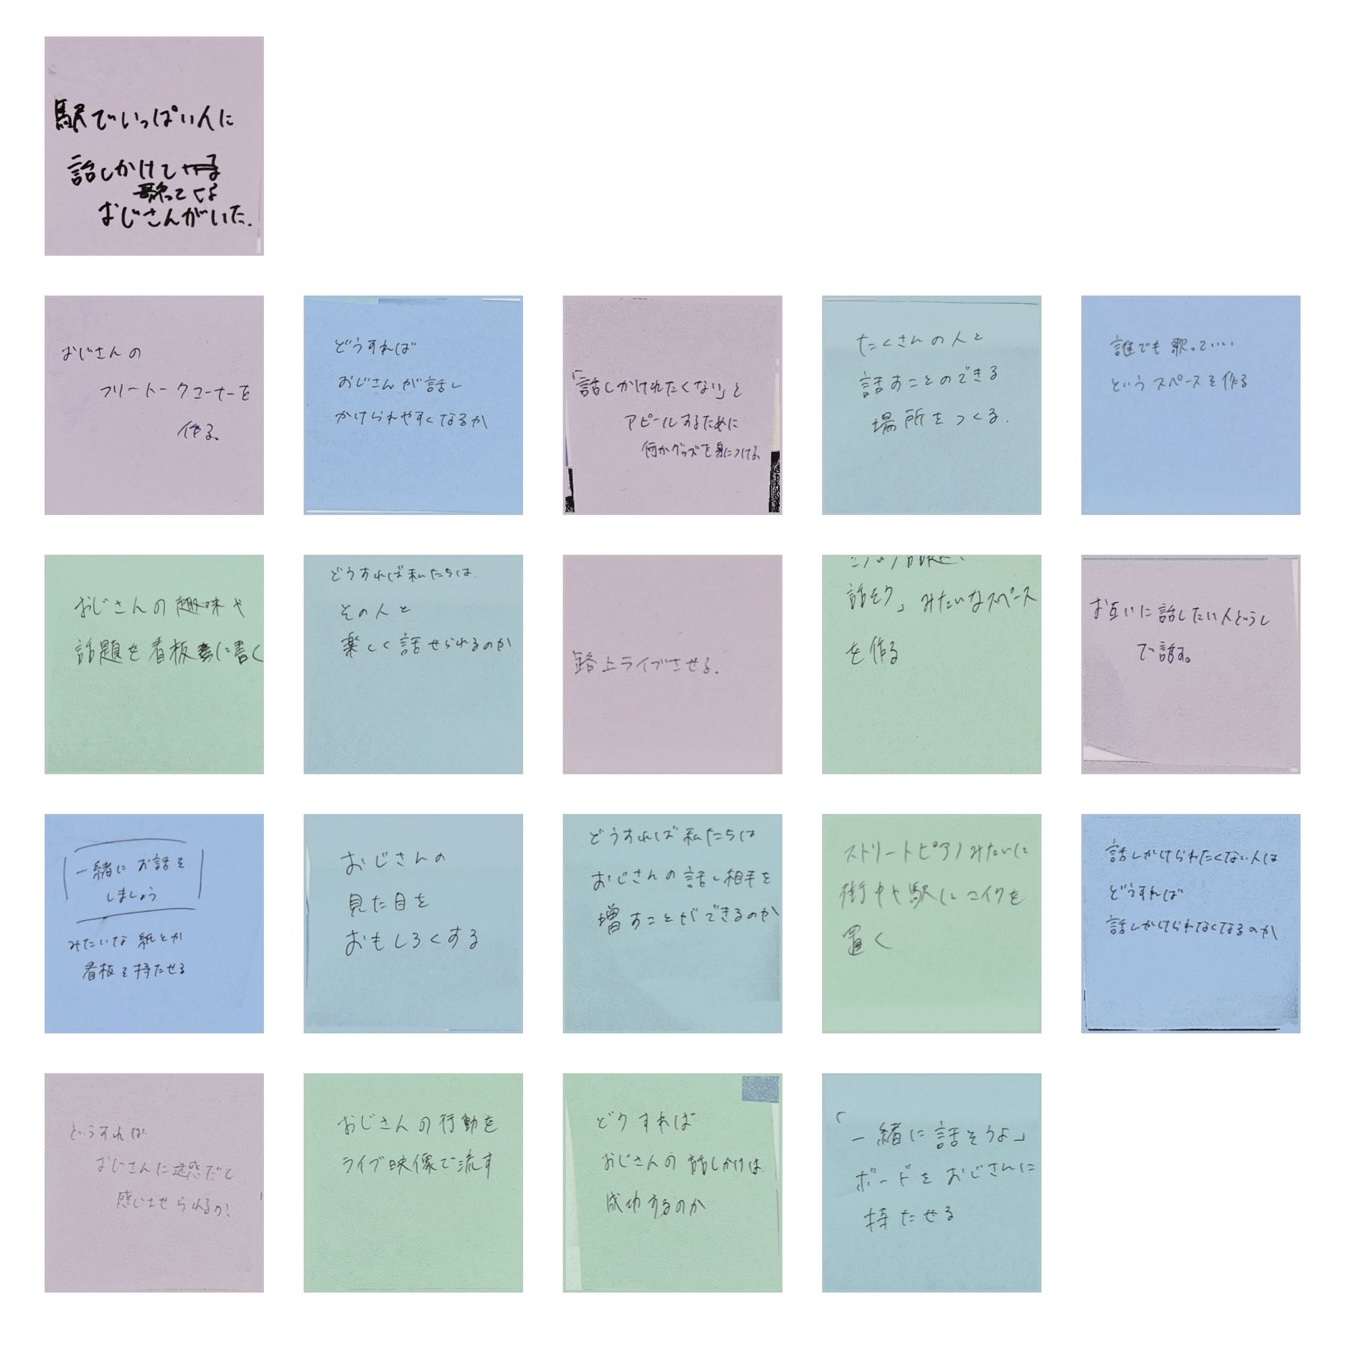 駅でいっぱい人に
話しかけて
歌ってる
おじさんがいた.
おじさんの
フリートークコーナーを
作る。
どうすれば
おじさんが話し
かけられやすくなるか
「話しかけれたくない」と
アピールするために
何かグッズを身につける。
たくさんの人と
話すことのできる
場所をつくる.
誰でも歌っていい
というスペースを作る
おじさんの趣味や
話題を看板に書く
どうすれば私たちは
その人と
楽しく話せられるのか
路上ライブさせる.
話そう」みたいなスペース
を作る
お互いに話したい人どうし
で話す。
一緒にお話を
しましょう
みたいな紙とか
看板を持たせる
おじさんの
見た目を
おもしろくする
どうすれば私たちは
おじさんの話し相手を
増すことができるのか
ストリートピアノみたいに
街中や駅にマイクを
置く
話しかけられたくない人は
どうすれば
話しかけられなくなるのか
どうすれば
おじさんに迷惑だと
感じさせられるか?
おじさんの行動を
ライブ映像で流す
どうすれば
おじさんの話しかけは
成功するのか
「一緒に話そうよ」
ボードをおじさんに
持たせる